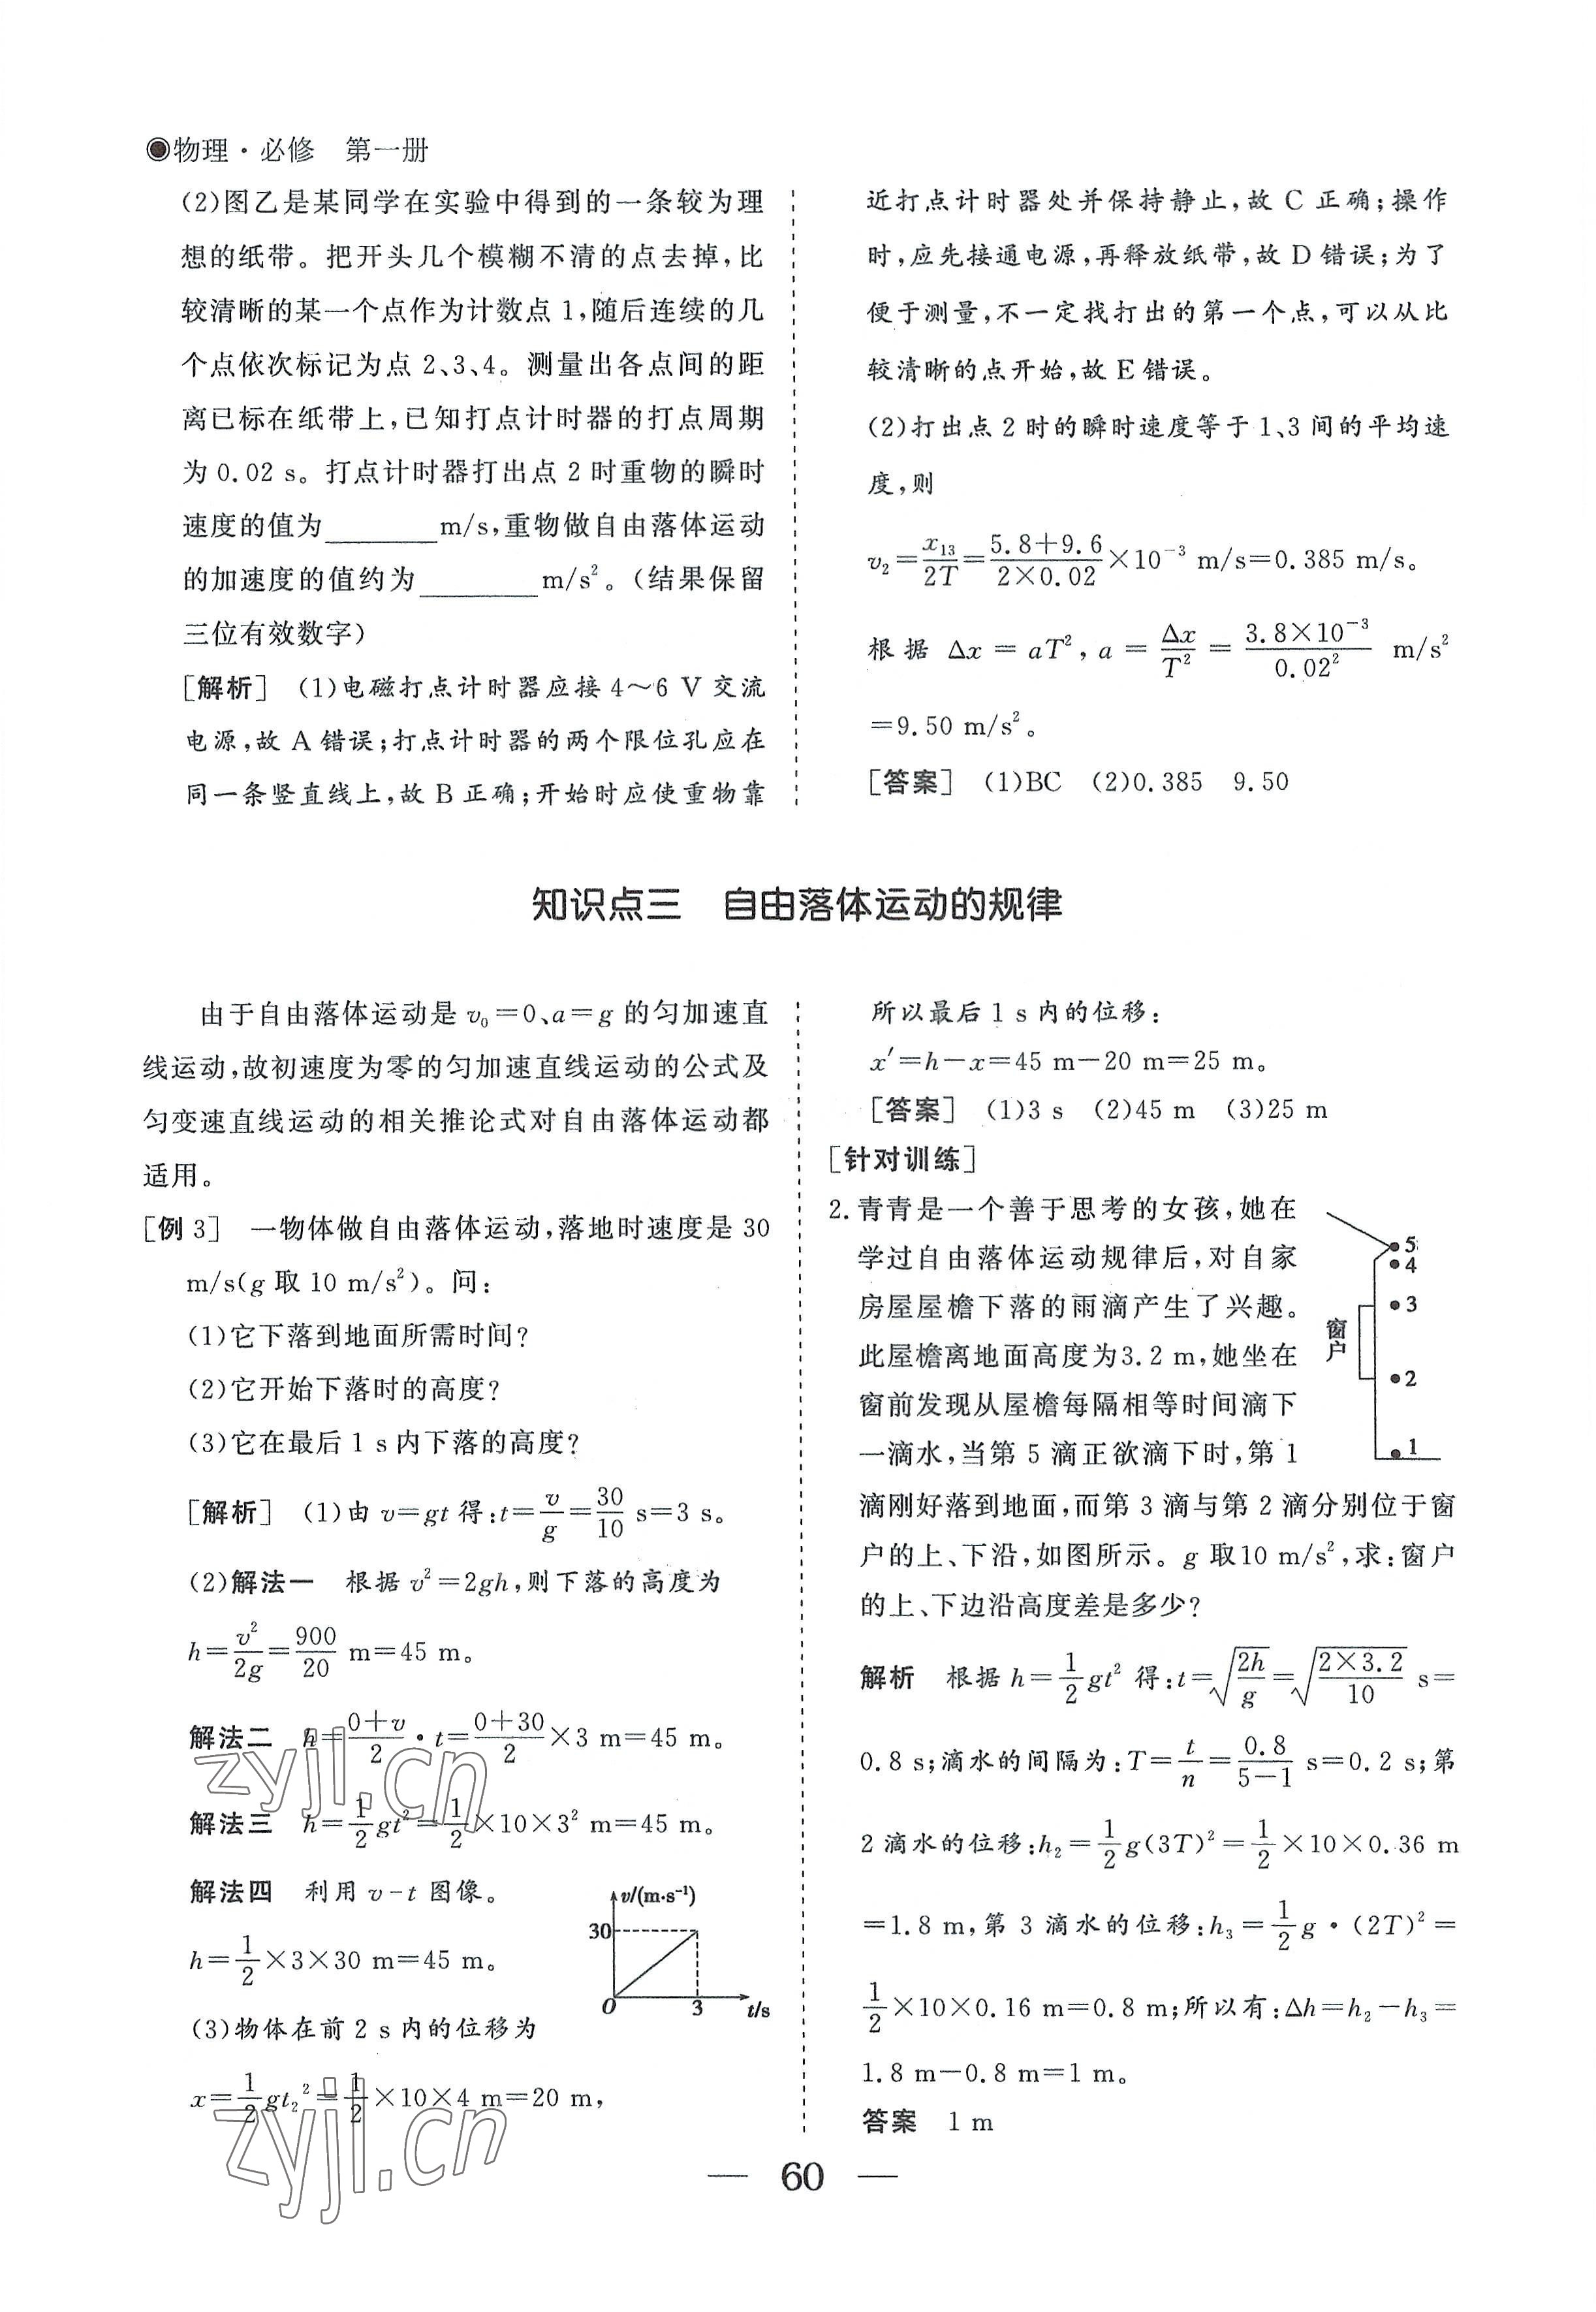 物理·必修 第一册
(2)图乙是某同学在实验中得到的一条较为理
想的纸带。把开头几个模糊不清的点去掉,比
较清晰的某一个点作为计数点1,随后连续的几
个点依次标记为点2、3、4。测量出各点间的距
离已标在纸带上,已知打点计时器的打点周期
为0.02 s。打点计时器打出点2时重物的瞬时
速度的值为________m/s,重物做自由落体运动
的加速度的值约为________m/s²。(结果保留
三位有效数字)
[解析] (1)电磁打点计时器应接4～6 V交流
电源,故A错误;打点计时器的两个限位孔应在
同一条竖直线上,故B正确;开始时应使重物靠
近打点计时器处并保持静止,故C正确;操作
时,应先接通电源,再释放纸带,故D错误;为了
便于测量,不一定找打出的第一个点,可以从比
较清晰的点开始,故E错误。
(2)打出点2时的瞬时速度等于1、3间的平均速
度,则
v₂=x₁₃/2T=(5.8+9.6)/(2×0.02)×10⁻³ m/s=0.385 m/s。
根据 Δx=aT², a=Δx/T²=(3.8×10⁻³)/0.02² m/s²
=9.50 m/s²。
[答案] (1)BC (2)0.385 9.50
知识点三 自由落体运动的规律
由于自由落体运动是v₀=0、a=g的匀加速直
线运动,故初速度为零的匀加速直线运动的公式及
匀变速直线运动的相关推论式对自由落体运动都
适用。
[例3] 一物体做自由落体运动,落地时速度是30
m/s(g取10 m/s²)。问:
(1)它下落到地面所需时间?
(2)它开始下落时的高度?
(3)它在最后1 s内下落的高度?
[解析] (1)由v=gt得:t=v/g=30/10 s=3 s。
(2)解法一 根据v²=2gh,则下落的高度为
h=v²/2g=900/20 m=45 m。
解法二 h=(0+v)/2·t=(0+30)/2×3 m=45 m。
解法三 h=1/2gt²=1/2×10×3² m=45 m。
解法四 利用v-t图像。
h=1/2×3×30 m=45 m。
v/(m·s⁻¹)
30
O 3 t/s
(3)物体在前2 s内的位移为
x=1/2gt₂²=1/2×10×4 m=20 m,
所以最后1 s内的位移:
x′=h-x=45 m-20 m=25 m。
[答案] (1)3 s (2)45 m (3)25 m
[针对训练]
2.青青是一个善于思考的女孩,她在
学过自由落体运动规律后,对自家
房屋屋檐下落的雨滴产生了兴趣。
此屋檐离地面高度为3.2 m,她坐在
窗前发现从屋檐每隔相等时间滴下
一滴水,当第5滴正欲滴下时,第1
滴刚好落到地面,而第3滴与第2滴分别位于窗
户的上、下沿,如图所示。g取10 m/s²,求:窗户
的上、下边沿高度差是多少?
5
4
3
窗户
2
1
解析 根据h=1/2gt²得:t=√(2h/g)=√(2×3.2/10) s=
0.8 s;滴水的间隔为:T=t/n=0.8/(5-1) s=0.2 s;第
2滴水的位移:h₂=1/2g(3T)²=1/2×10×0.36 m
=1.8 m,第3滴水的位移:h₃=1/2g·(2T)²=
1/2×10×0.16 m=0.8 m;所以有:Δh=h₂-h₃=
1.8 m-0.8 m=1 m。
答案 1 m
zyjl.cn
zyjl.cn
— 60 —